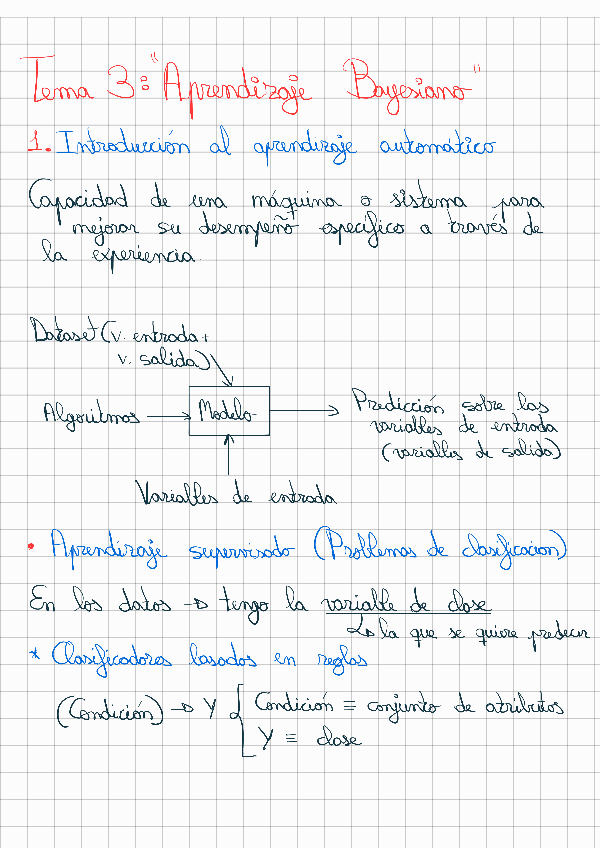 Tema 3: "Aprendizaje Bayesiano"
1. Introducción al aprendizaje automático
Capacidad de una máquina o sistema para
mejorar su desempeño específico a través de
la experiencia.
Dataset (v. entrada +
v. salida)
Algoritmos → Modelo → Predicción sobre las
variables de entrada
(variables de salida)
Variables de entrada
• Aprendizaje supervisado (Problemas de clasificacion)
En los datos → tengo la variable de clase
↳ la que se quiere predecir
* Clasificadores basados en reglas
(Condición) → Y { Condición ≡ conjunto de atributos
Y ≡ clase